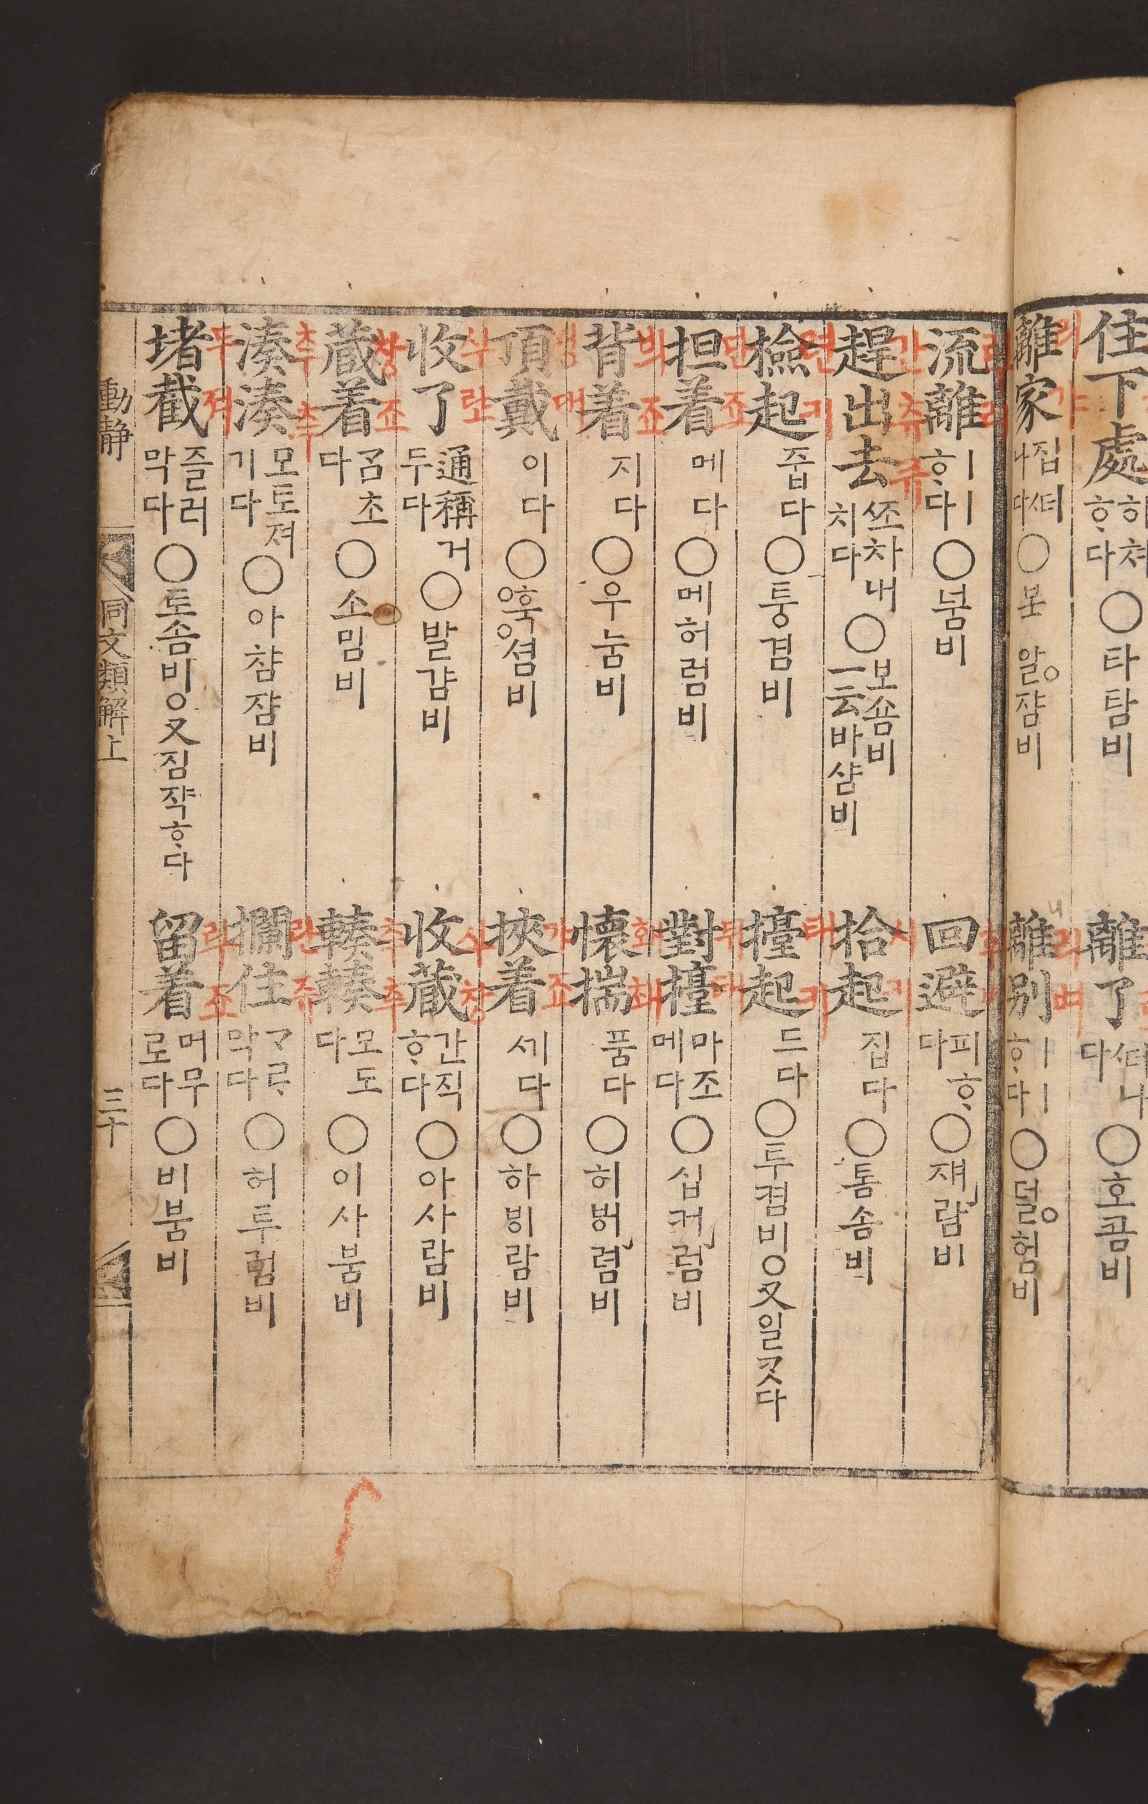 住下處 하쳐ᄒᆞ다 ○타탐비
離了 ᄯᅥ나다 ○호곰비
離家 집ᄯᅥ나다 ○몬 알쟘비
離別 〡〡ᄒᆞ다 ○덜험비
流離 〡〡ᄒᆞ다 ○넘비
回避 피ᄒᆞ다 ○쟤람비
趕出去 ᄶᅩ차내치다 ○보숌비 一云바샴비
拾起 집다 ○톰솜비
檢起 줍다 ○퉁겸비
擡起 드다 ○투켬비○又일ᄏᆞᆺ다
担着 메다 ○메허럼비
對擡 마조메다 ○십커럼비
背着 지다 ○우눔비
懷揣 품다 ○허벼렴비
頂戴 이다 ○훅셤비
挾着 ᄭᅵ다 ○하비람비
收了 通稱거두다 ○발걈비
收藏 간직ᄒᆞ다 ○아사람비
藏着 ᄀᆞᆷ초다 ○소밈비
輳輳 모도다 ○이사붐비
湊湊 모토져기다 ○아챰쟘비
攔住 ᄀᆞᄅᆞ막다 ○허투럼비
堵截 즐러막다 ○토솜비○又짐쟉ᄒᆞ다
留着 머무로다 ○비붐비
動靜 同文類解上 三十